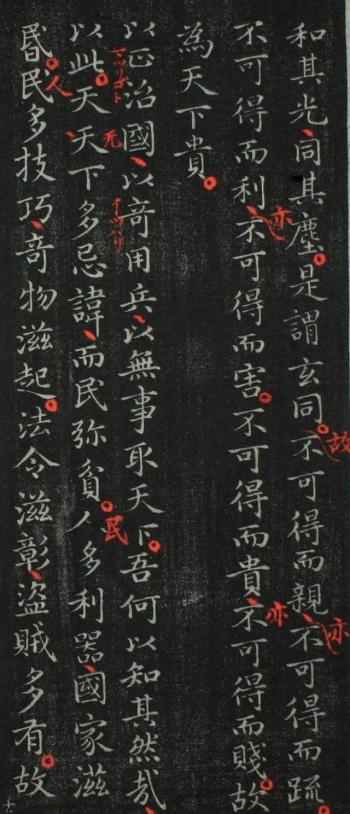 和其光同其塵是謂玄同不可得而親不可得而疏
故
亦
不可得而利不可得而害不可得而貴不可得而賤故
亦
亦
為天下貴
以正治國以奇用兵以無事取天下吾何以知其然哉
以此天天下多忌諱而民弥貧人多利器國家滋
民
昬民多技巧奇物滋起法令滋彰盜賊多有故
人